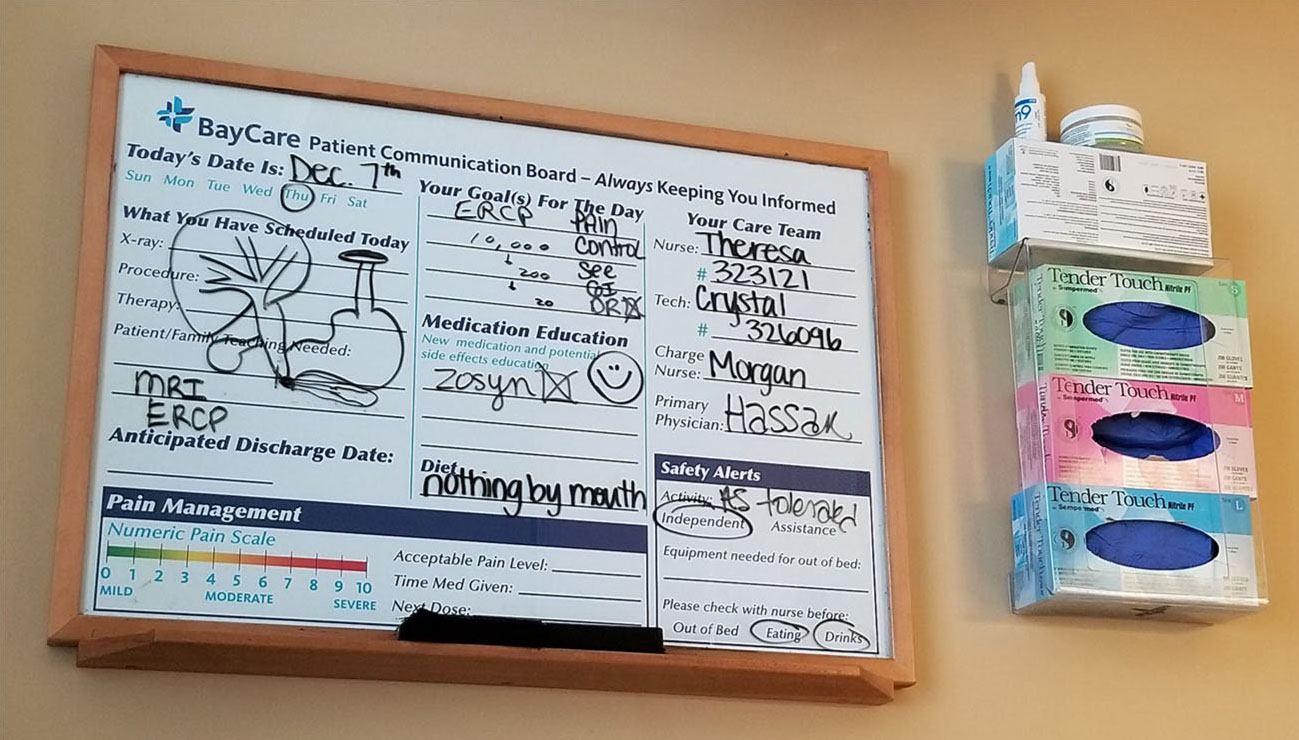 BayCare Patient Communication Board – Always Keeping You Informed
Today's Date Is: Dec. 7th
Sun Mon Tue Wed Thu Fri Sat
What You Have Scheduled Today
X-ray:
Procedure:
Therapy:
Patient/Family Teaching Needed:
MRI
ERCP
Anticipated Discharge Date:
Your Goal(s) For The Day
ERCP PAIN
10,000 control
200 see
GI
20 DR
Medication Education
New medication and potential
side effects education
zosyn
Diet
nothing by mouth
Your Care Team
Nurse: Theresa
# 323121
Tech: Crystal
# 326096
Charge
Nurse: Morgan
Primary
Physician: Hassan
Safety Alerts
Activity: AS tolerated
Independent Assistance
Equipment needed for out of bed:
Please check with nurse before:
Out of Bed Eating Drinks
Pain Management
Numeric Pain Scale
0 1 2 3 4 5 6 7 8 9 10
MILD MODERATE SEVERE
Acceptable Pain Level:
Time Med Given:
Next Dose:
Tender Touch Nitrile PF
by Sempermed
S
Tender Touch Nitrile PF
by Sempermed
M
Tender Touch Nitrile PF
by Sempermed
L